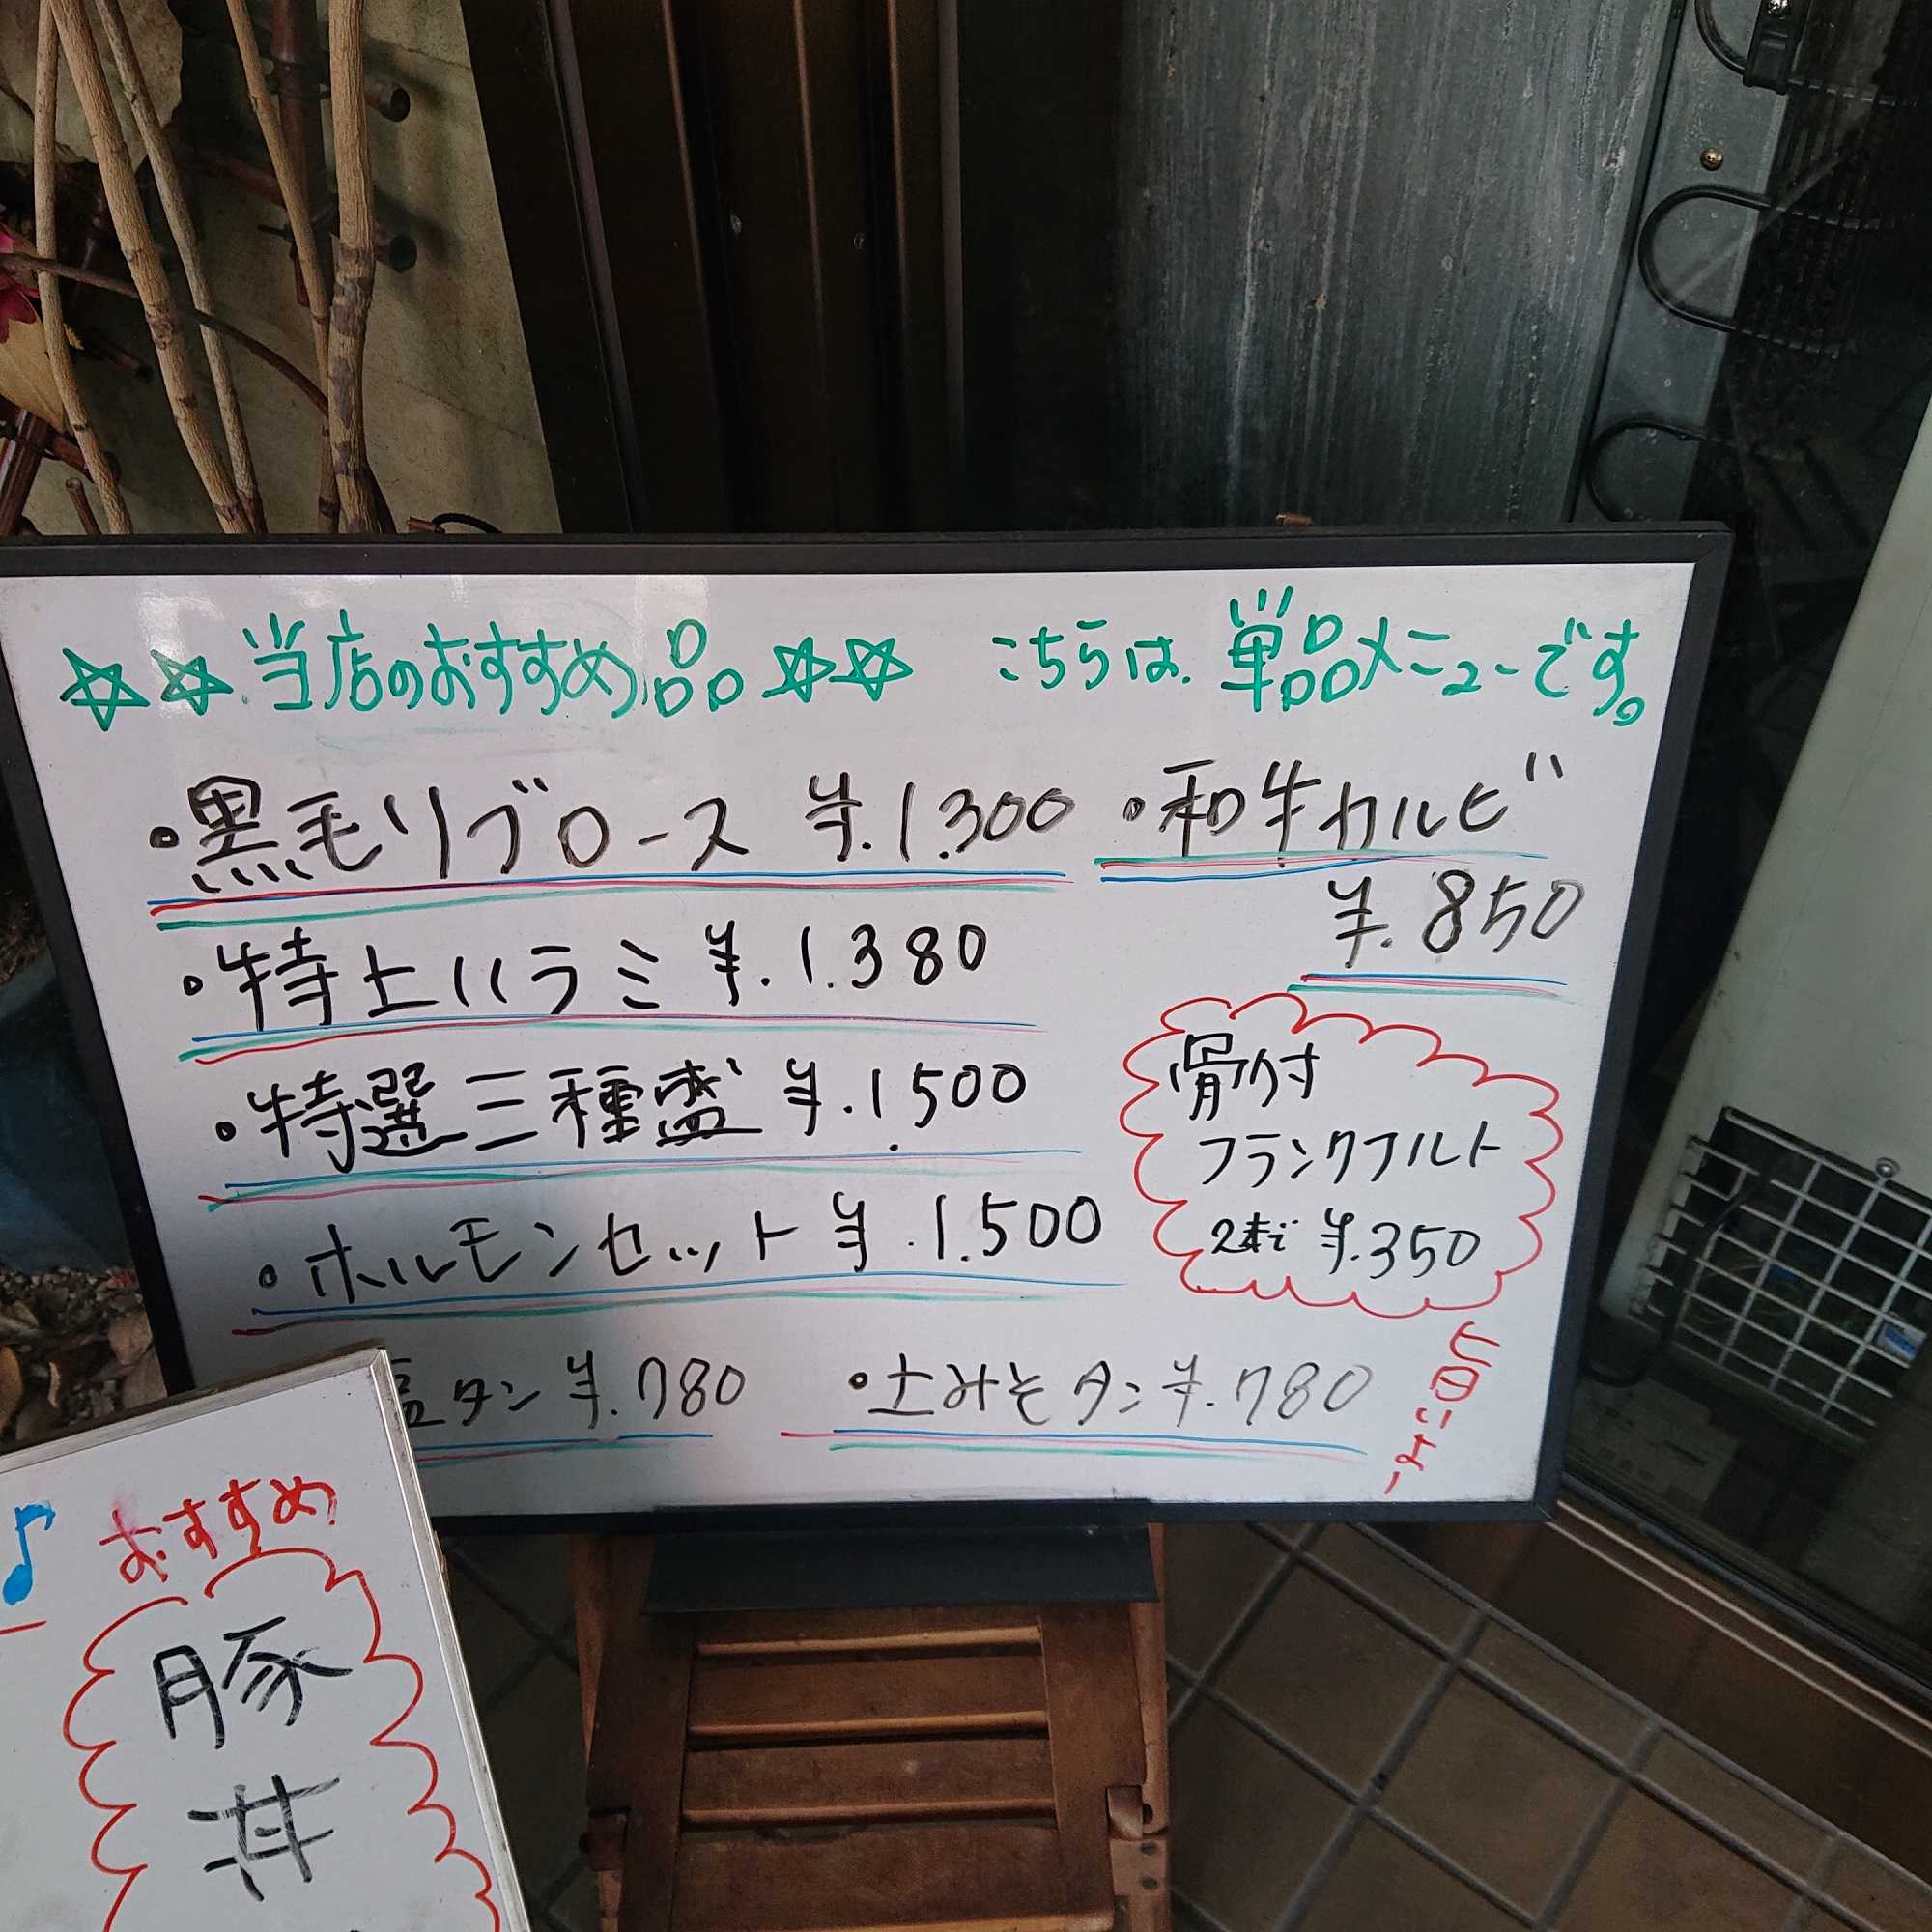 ☆☆当店のおすすめ品☆☆ こちらは単品メニューです。
・黒毛リブロース ¥.1.300
・和牛カルビ
¥.850
・特上ハラミ ¥.1.380
・特選三種盛 ¥.1.500
・ホルモンセット ¥.1.500
骨付
フランクフルト
2本で ¥.350
塩タン ¥.780
・上みそタン ¥.780
♪ おすすめ
豚
丼